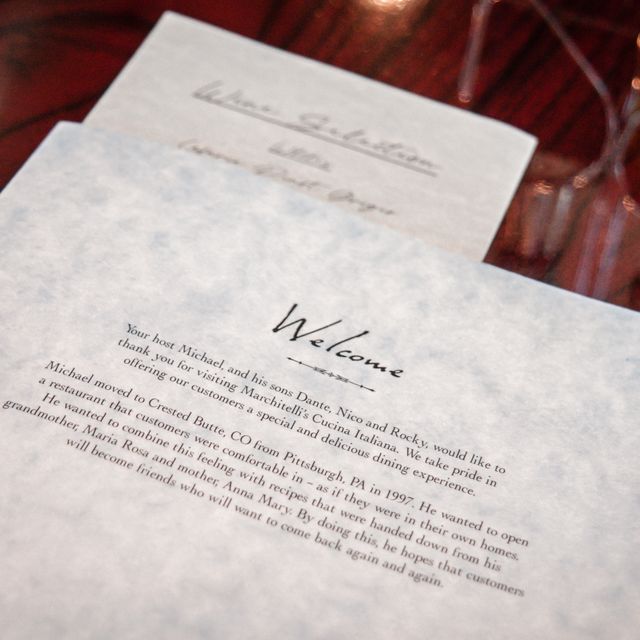 Wine Selection
Welcome
Your host Michael, and his sons Dante, Nico and Rocky, would like to
thank you for visiting Marchitelli's Cucina Italiana. We take pride in
offering our customers a special and delicious dining experience.
Michael moved to Crested Butte, CO from Pittsburgh, PA in 1997. He wanted to open
a restaurant that customers were comfortable in – as if they were in their own homes.
He wanted to combine this feeling with recipes that were handed down from his
grandmother, Maria Rosa and mother, Anna Mary. By doing this, he hopes that customers
will become friends who will want to come back again and again.